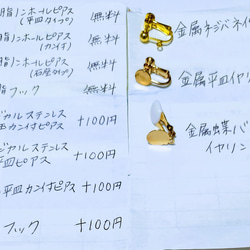 脂ノンホールピアス
(平皿タイプ) 無料
脂ノンホールピアス
(カン付) 無料
脂ノンホールピアス
(石座タイプ) 無料
脂フック 無料
ジカルステンレス
玉カン付ピアス +100円
ジカルステンレス
平皿ピアス +100円
平皿カン付ピアス +100円
フック +100円
金属ネジバネイ
金属平皿イヤリン
金属蝶バ
イヤリン